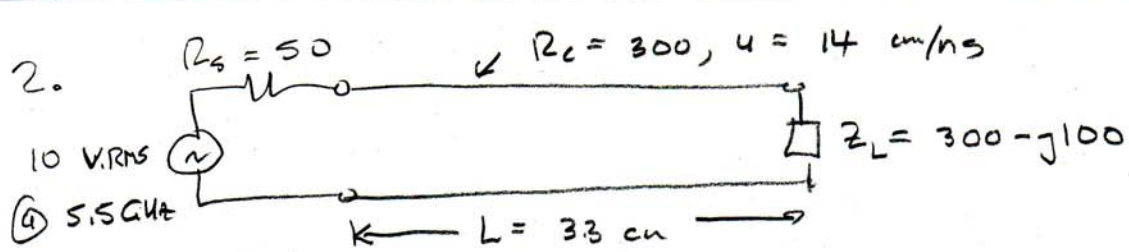 2.
R_s = 50
R_c = 300, u = 14 cm/ns
10 V.RMS
@ 5.5 GHz
Z_L = 300 - j100
L = 3.3 cm